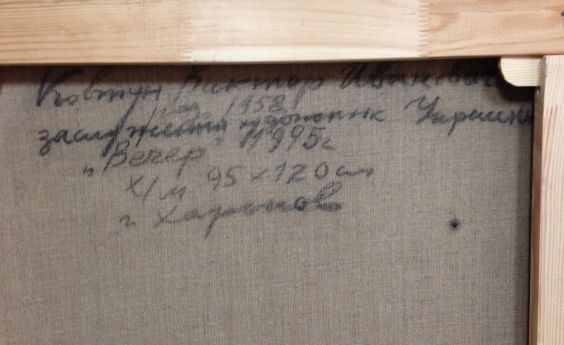 Ковтун Виктор Иванович
/ год 1958 /
заслуженный художник Украины
"Вечер" 1995г
х/м 95 x 120 см
г Харьков